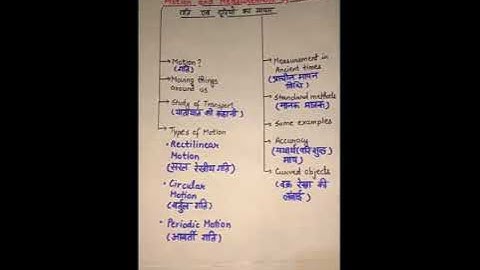 Motion and Measurement of
गति एवं दूरियों का मापन
Motion?
(गति)
Moving things
around us
Study of Transport
(यातायात की कहानी)
Types of Motion
Rectilinear
Motion
(सरल रेखीय गति)
Circular
Motion
(वर्तुल गति)
Periodic Motion
(आवर्ती गति)
Measurement in
Ancient times
(प्राचीन मापन
विधि)
Standard methods
(मानक मात्रक)
Some examples
Accuracy
(यथार्थ(परिशुद्ध)
माप)
Curved objects
(वक्र रेखा की
लंबाई)